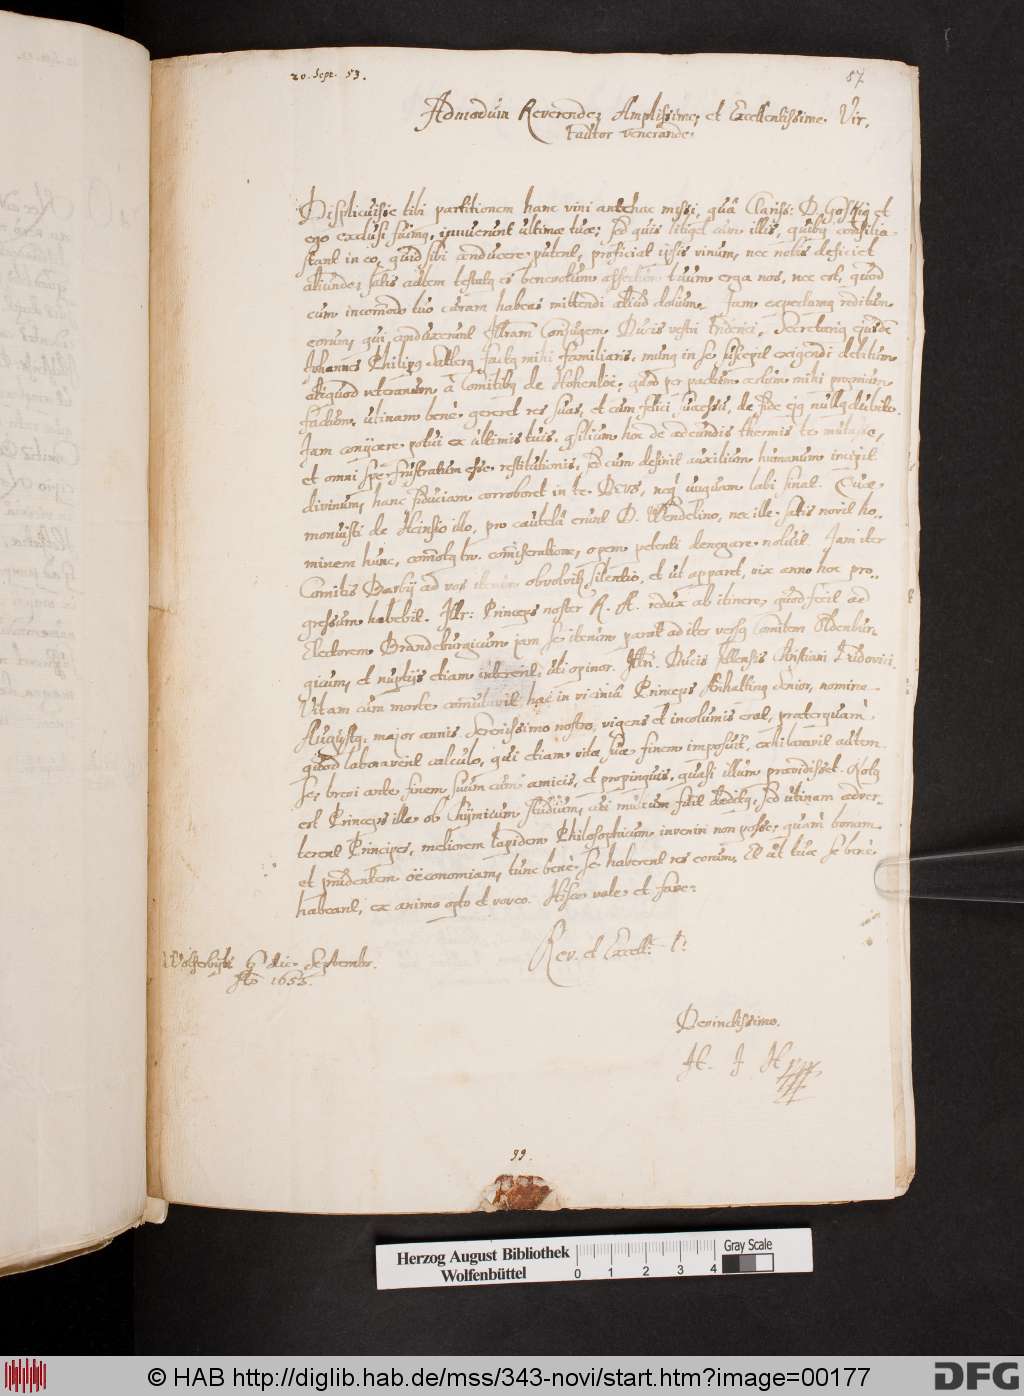 20. Sept. 53.
87
Admodum Reverende, Amplissime, et Excellentissime Vir,
Fautor venerande.
Displicuisse tibi partitionem hanc vini antehac missi, quâ Clariss: D. et
ego exclusi fuimq, innuerunt ultimæ tuæ; sed quis litiget cum illis, quibq consilia
stant in eo, quid sibi conducere putent, proficiat ipsis vinum, nec nobis deficiet
aliunde; satis autem testatq es benevolum affectum tuum erga nos, nec est, quod
cum incommodo tuo curam habeas mittendi aliud dolium. Jam expectamq reditum
eorum, qui conduxerunt Illram Conjugem Ducis vestri Friderici, Secretariq ejusdē
Johannes Philipq factq mihi familiaris, munq in se suscepit exigendi debitum
aliquod veteranum, à Comitibq de Hohenloë, quod per pactum mihi proprium
factum, utinam benè gereret res suas, et cum felici successu, de fide ejq nullq dubito.
Jam conijcere potui ex ultimis tuis, consilium hoc de adeundis thermis te mutasse,
et omni spē frustratum esse restitutionis, sed cum desinit auxilium humanum incipit
divinum, hanc fiduciam corroboret in te DEUS, neq unquam labi sinat. Quæ
monuisti de Heinsio illo, pro cautelâ erunt D. Wendelino, nec ille satis novit ho-
minem hunc, commotq tn. commiseratione, opem petenti denegare noluit. Jam iter
Comitis Barbij ad vos iterum obvolvitq silentio, et ut apparet, vix anno hoc pro-
gressum habebit. Illr: Princeps noster R. A. redux ab itinere, quod fecit ad
Electorem Brandeburgicum jam se iterùm parat ad iter versq Comitem Oldenbur-
gicum, et nuptijs etiam intererit, uti opinor, Illri. Ducis Christiani Ludovici.
Vitam cum morte commutavit hac in viciniâ Princeps Anhaltinq senior, nomine
Augustq, major annis Serenissimo nostro, vigens et incolumis erat, præterquàm
quod laboraverit calculo, qui etiam vitæ suæ finem imposuit, exhilaravit autem
se, brevi ante finem suum cum amicis, et propinquis, quasi illum prævidisset. Notq
est Princeps ille ob Chÿmicum studium, cui multum fuit deditq, sed utinam adver-
terent Principes, meliorem lapidem Philosophicum inveniri non posse, quàm bonam
et prudentem oëconomiam, tunc benè se haberent res eorum, Et ut tuæ se benè
habeant, ex animo opto et voveo. Hisce vale et fave.
Rev. et Excell: T:
Wolferbyti 6 die Septembr.
Ao 1653.
Devinctissimo.
H. J H
99.
Herzog August Bibliothek
Wolfenbüttel
0 1 2 3 4
Gray Scale
© HAB http://diglib.hab.de/mss/343-novi/start.htm?image=00177
DFG